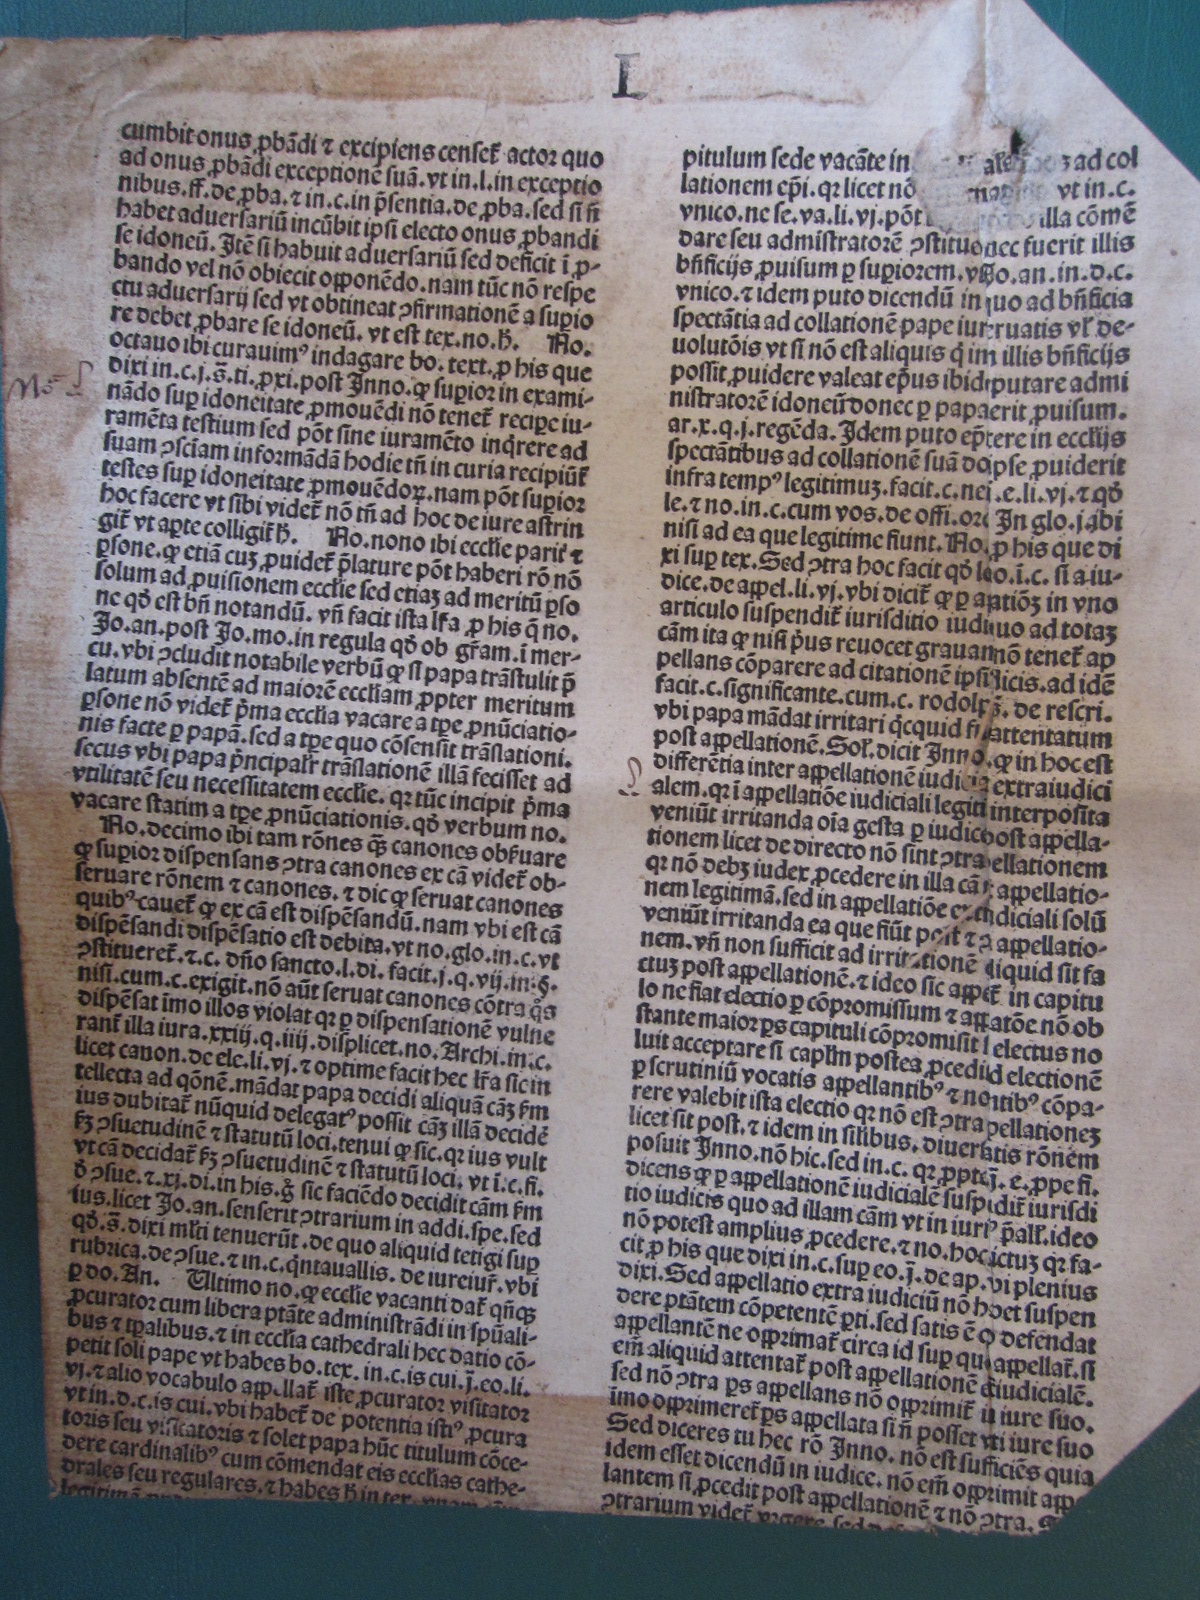 L
cumbit onus ꝓbādi ⁊ excipiens censet̄ actor quo
ad onus ꝓbādi exceptionē suā. vt in.l.in exceptio
nibus.ff.de ꝓba.⁊ in.c.in p̄sentia.de ꝓba.sed si n̄
habet aduersariū incūbit ipsi electo onus ꝓbandi
se idoneū. Itē si habuit aduersariū sed deficit ī ꝓ-
bando vel nō obiecit opponēdo.nam tūc nō respe
ctu aduersarij sed vt obtineat ꝯfirmationē a supio
re debet ꝓbare se idoneū. vt est tex.no.h̄. No.
octauo ibi curauimꝰ indagare bo. text. ꝓ his que
dixi in.c.j.s̄.ti.ꝓxi.post Inno.ꝙ supior in exami-
nādo suꝑ idoneitate ꝓmouēdi nō tenet̄ recipe iu-
ramēta testium sed pōt sine iuramēto inq̄rere ad
suam ꝯsciam informādā hodie tn̄ in curia recipiūt̄
testes suꝑ idoneitate ꝓmouēdoꝝ.nam pōt supior
hoc facere vt sibi videt̄ nō tn̄ ad hoc de iure astrin
git̄ vt aꝑte colligit̄ h̄. No.nono ibi ecclīe parit̄ ⁊
ꝑsone.ꝙ etiā cuꝫ ꝓuidet̄ p̄lature pōt haberi rō nō
solum ad ꝓuisionem ecclīe sed etiaꝫ ad meritū ꝑso
ne qd̄ est bn̄ notandū. vn̄ facit ista lr̄a ꝓ his q̄ no.
Jo.an.post Jo.mo.in regula qd̄ ob gr̄am.ī mer-
cu.vbi ꝯcludit notabile verbū ꝙ si papa trāstulit p̄
latum absentē ad maiorē ecclīam ꝓpter meritum
ꝑsone nō videt̄ p̄ma ecclīa vacare a tꝑe ꝓnūciatio-
nis facte ꝑ papā.sed a tꝑe quo cōsensit trāslationi.
secus vbi papa p̄ncipalr̄ trāslationē illā fecisset ad
vtilitatē seu necessitatem ecclīe. qꝛ tūc incipit p̄ma
vacare statim a tꝑe ꝓnūciationis.qd̄ verbum no.
No.decimo ibi tam rōnes q̄ꝫ canones obs̄uare
ꝙ supior dispensans ꝯtra canones ex cā videt̄ ob-
seruare rōnem ⁊ canones. ⁊ dic ꝙ seruat canones
quibꝰ cauet̄ ꝙ ex cā est dispēsandū.nam vbi est cā
dispēsandi dispēsatio est debita.vt no.glo.in.c.vt
ꝯstitueret̄.⁊.c. dn̄o sancto.l.di. facit.j.q.vij.in.§.
nisi.cum.c.exigit.nō aūt seruat canones cōtra q̊s
dispēsat īmo illos violat qꝛ ꝑ dispensationē vulne
rant̄ illa iura.xxiij.q.iiij.displicet.no.Archi.in.c.
licet canon.de elc.li.vj.⁊ optime facit hec lr̄a sic in
tellecta ad qōnē.mādat papa decidi aliquā cāꝫ s̄m
ius dubitat̄ nūquid delegatꝰ possit cāꝫ illā decidē
s̄ꝫ ꝯsuetudinē ⁊ statutū loci.tenui ꝙ sic.qꝛ ius vult
vt cā decidat̄ s̄ꝫ ꝯsuetudinē ⁊ statutū loci. vt ī.c.fi.
d̄ ꝯsue.⁊.xj.di.in his.g̊ sic faciēdo decidit cām s̄m
ius.licet Jo.an.senserit ꝯtrarium in addi.spe.sed
qd̄.s̄.dixi ml̄ti tenuerūt .de quo aliquid tetigi suꝑ
rubrica.de ꝯsue.⁊ in.c.q̄ntauallis. de iureiur̄.vbi
ꝑ do.An. Ultimo no.ꝙ ecclīe vacanti dat̄ qn̄qꝫ
ꝓcurator cum libera ptāte administrādi in spūali-
bus ⁊ tꝑalibus.⁊ in ecclīa cathedrali hec datio cō-
petit soli pape vt habes bo.tex. in.c.is cui.j̄.eo.li.
vj.⁊ alio vocabulo appellat̄ iste ꝓcurator visitator
vt in.d.c.is cui.vbi habet̄ de potentia istiꝰ ꝓcura
toris seu visitatoris ⁊ solet papa hūc titulum cōce-
dere cardinalibꝰ cum cōmendat eis ecclīas cathe-
drales seu regulares.⁊ habes h̄ in tex.
pitulum sede vacāte in ad col
lationem ep̄i.qꝛ licet nō vt in.c.
vnico.ne se.va.li.vj.pōt illa cōmē
dare seu admīstratorē ꝯstitu nec fuerit illis
bn̄ficijs ꝓuisum ꝑ supiorem.v o.an.in.d.c.
vnico.⁊ idem puto dicendū in quo ad bn̄ficia
spectātia ad collationē pape iur ruatis vl̄ de-
uolutōis vt si nō est aliquis q̄ im illis bn̄ficijs
possit ꝓuidere valeat ep̄us ibid putare admi
nistratorē idoneū donec ꝑ papa erit ꝓuisum.
ar.x.q.j.regēda. Idem puto ep̄ ere in ecclījs
spectātibus ad collationē suā do ipse ꝓuiderit
infra tempꝰ legitimuꝫ.facit.c.ne .e.li.vj.⁊ qd̄
le.⁊ no.in.c.cum vos.de offi.or In glo.j.ibi
nisi ad ea que legitime fiunt. No. ꝓ his que di
xi suꝑ tex. Sed ꝯtra hoc facit qd̄ o.ī.c. si a iu-
dice.de appel.li.vj.vbi dicit̄ ꝙ ꝑ a atiōꝫ in vno
articulo suspendit̄ iurisditio iudi uo ad totaꝫ
cām ita ꝙ nisi p̄us reuocet graua nō tenet̄ ap
pellans cōparere ad citationē ipsi licis.ad idē
facit.c.significante.cum.c. rodol . de rescri.
vbi papa mādat irritari q̄cquid f attentatum
post appellationē.Sol̄.dicit Inno.ꝙ in hoc est
differētia inter appellationē iudi a extraiudici
alem.qꝛ ī appellatiōe iudiciali legiti interposita
veniūt irritanda oīa gesta ꝑ iudic post appella-
tionem licet de directo nō sint ꝯtra ellationem
qꝛ nō debꝫ iudex ꝓcedere in illa cā appellatio-
nem legitimā.sed in appellatiōe e diciali solū
veniūt irritanda ea que fiūt post ⁊ ꝯ appellatio-
nem.vn̄ non sufficit ad irritationē liquid sit fa
ctuꝫ post appellationē.⁊ ideo sic appet̄ in capitu
lo ne fiat electio ꝑ cōpromissum ⁊ app̄atōe nō ob
stante maior ps capituli cōpromisit electus no
luit acceptare si caplm̄ postea ꝓcedi d electionē
ꝑ scrutiniū vocatis appellantibꝰ ⁊ no tibꝰ cōpa-
rere valebit ista electio qꝛ nō est ꝯtra pellationeꝫ
licet sit post.⁊ idem in sil̄ibus. diuer tis rōnem
posuit Inno.nō hic.sed in.c. qꝛ ꝓpt j̄. e.ꝓpe fi.
dicens ꝙ ꝑ appellationē iudicialē susp dit̄ iurisdi
tio iudicis quo ad illam cām vt in iuri p̄alr̄.ideo
nō potest amplius ꝓcedere.⁊ no.hoc ictuꝫ qꝛ fa-
cit ꝓ his que dixi in.c.suꝑ eo.j̄.de ap.vi plenius
dixi.Sed appellatio extra iudiciū nō h et suspen
dere ptātem cōpetentē ꝑti.sed satis ē defendat
appellantē ne opprimat̄ circa id suꝑ q appellat̄.si
em̄ aliquid attentat̄ post appellationē iudicialē.
sed nō ꝯtra ps appellans nō opprimit̄ iure suo.
īmo opprimeret̄ ps appellata si n̄ posset ti iure suo
Sed diceres tu hec rō Inno. nō est sufficiēs quia
idem esset dicendū in iudice. nō em̄ opprimit app
lantem si ꝓcedit post appellationē ⁊ nō ꝯtra.
ꝯtrarium videt̄